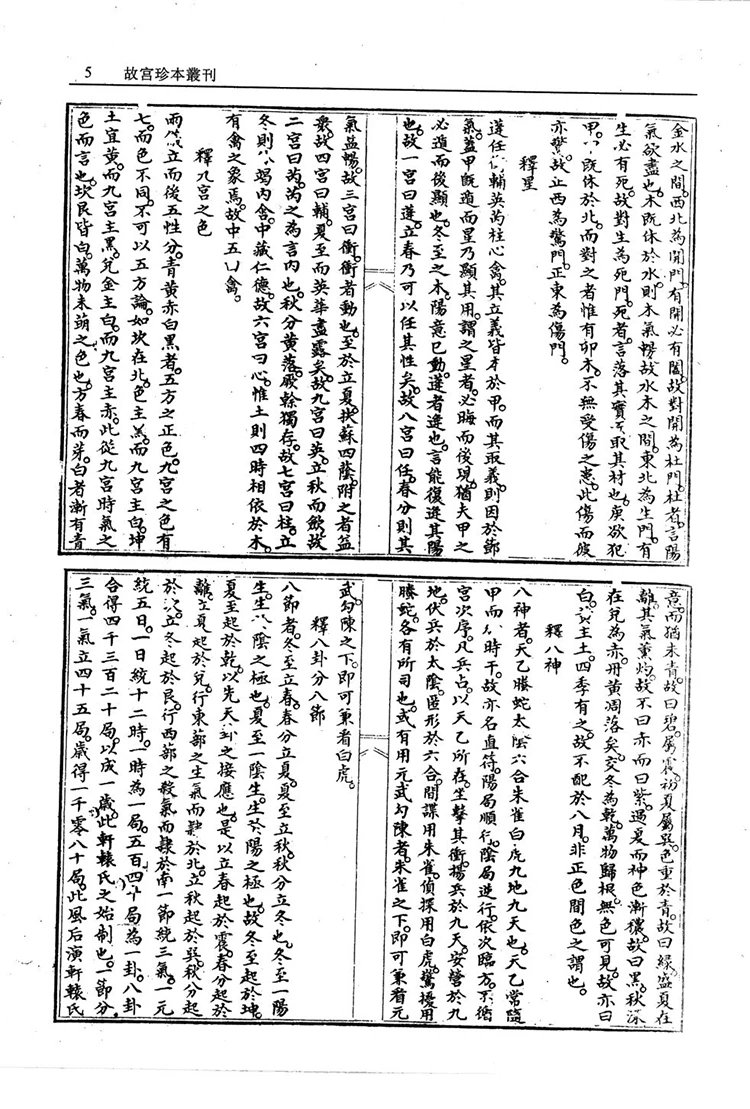 5 故宮珍本叢刊
金水之間。西北為開門。有開必有闔。故對開為杜門。杜者。言陽
氣欲盡也。木既休於水。則木氣暢。故水木之間。東北為生門。有
生必有死。故對生為死門。死者。言落其實而取其材也。庚欲犯
甲。既休於北。而對之者惟有卯木。不無受傷之患。此傷而彼
亦驚。故正西為驚門。正東為傷門。
釋星
蓬任輔英芮柱心禽。其立義皆本於甲。而其取義。則因於節
氣。蓋甲既遁而星乃顯其用。謂之星者。必晦而後現。猶夫甲之
必遁而後顯也。冬至之木。陽竟已動。蓬者逢也。言能復逢其陽
也。故一宮曰蓬。立春乃可以任其性矣。故八宮曰任。春分則其
氣益暢。故三宮曰衝。衝者動也。至於立夏。扶蘇四蔭。附之者益
衆。故四宮曰輔。夏至而英華盡露矣。故九宮曰英。立秋而斂。故
二宮曰芮。芮之為言內也。秋分黃落。厥榦獨存。故七宮曰柱。立
冬則竭內含。中藏仁德。故六宮曰心。惟土則四時相依於木。
有禽之象焉。故中五曰禽。
釋九宮之色
兩立而後五性分。青黃赤白黑者。五方之正色。九宮之色有
七。而色不同。不可以五方論。如坎在北。色主黑。而九宮主白。坤
土宜黃。而九宮主黑。兌金主白。而九宮主赤。此從九宮時氣之
色而言也。坎艮皆白。萬物未萌之色也。方春而芽。白者漸有青
意。而猶未青。故曰碧。屬震。初夏屬巽。色重於青。故曰綠。盛夏在
離。其氣薰灼。故不曰赤而曰紫。過夏而神色漸穠。故曰黑。秋深
在兌為赤。丹黃凋落矣。交冬為乾。萬物歸根。無色可見。故亦曰
白。主土。四季有之。故不配於八月。非正色間色之謂也。
釋八神
八神者。天乙螣蛇太陰六合朱雀白虎九地九天也。天乙常隨
甲而時干。故亦名直符。陽局順行。陰局逆行。依次臨方。不循
宮次序。凡兵占。以天乙所在。坐擊其衝。揚兵於九天。安營於九
地。伏兵於太陰。匿形於六合。間諜用朱雀。偵探用白虎。驚擾用
螣蛇。各有所司也。或有用元武勾陳者。朱雀之下。即可兼看元
武。勾陳之下。即可兼看白虎。
釋八卦分八節
八節者。冬至立春。春分立夏。夏至立秋。秋分立冬也。冬至一陽
生。生於陰之極也。夏至一陰生。生於陽之極也。故冬至起於坤。
夏至起於乾。以先天之接應也。是以立春起於震。春分起於
離。立夏起於兌。行東節之生氣而隸於北。立秋起於巽。秋分起
於坎。立冬起於艮。行西節之殺氣而隸於南。一節統三氣。一元
統五日。一日統十二時。一時為一局。五百四十局為一卦。八卦
合得四千三百二十局。以成一歲。此軒轅氏之始制也。一節分
三氣。一氣立四十五局。歲得一千零八十局。此風后演軒轅氏